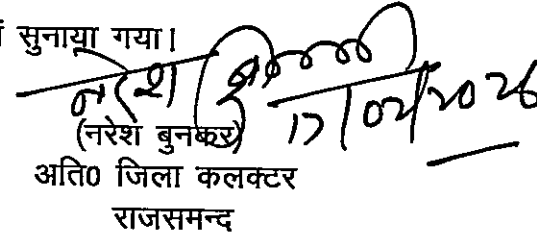 सुनाया गया।
नरेश
17/02/2026
(नरेश बुनकर)
अति0 जिला कलक्टर
राजसमन्द